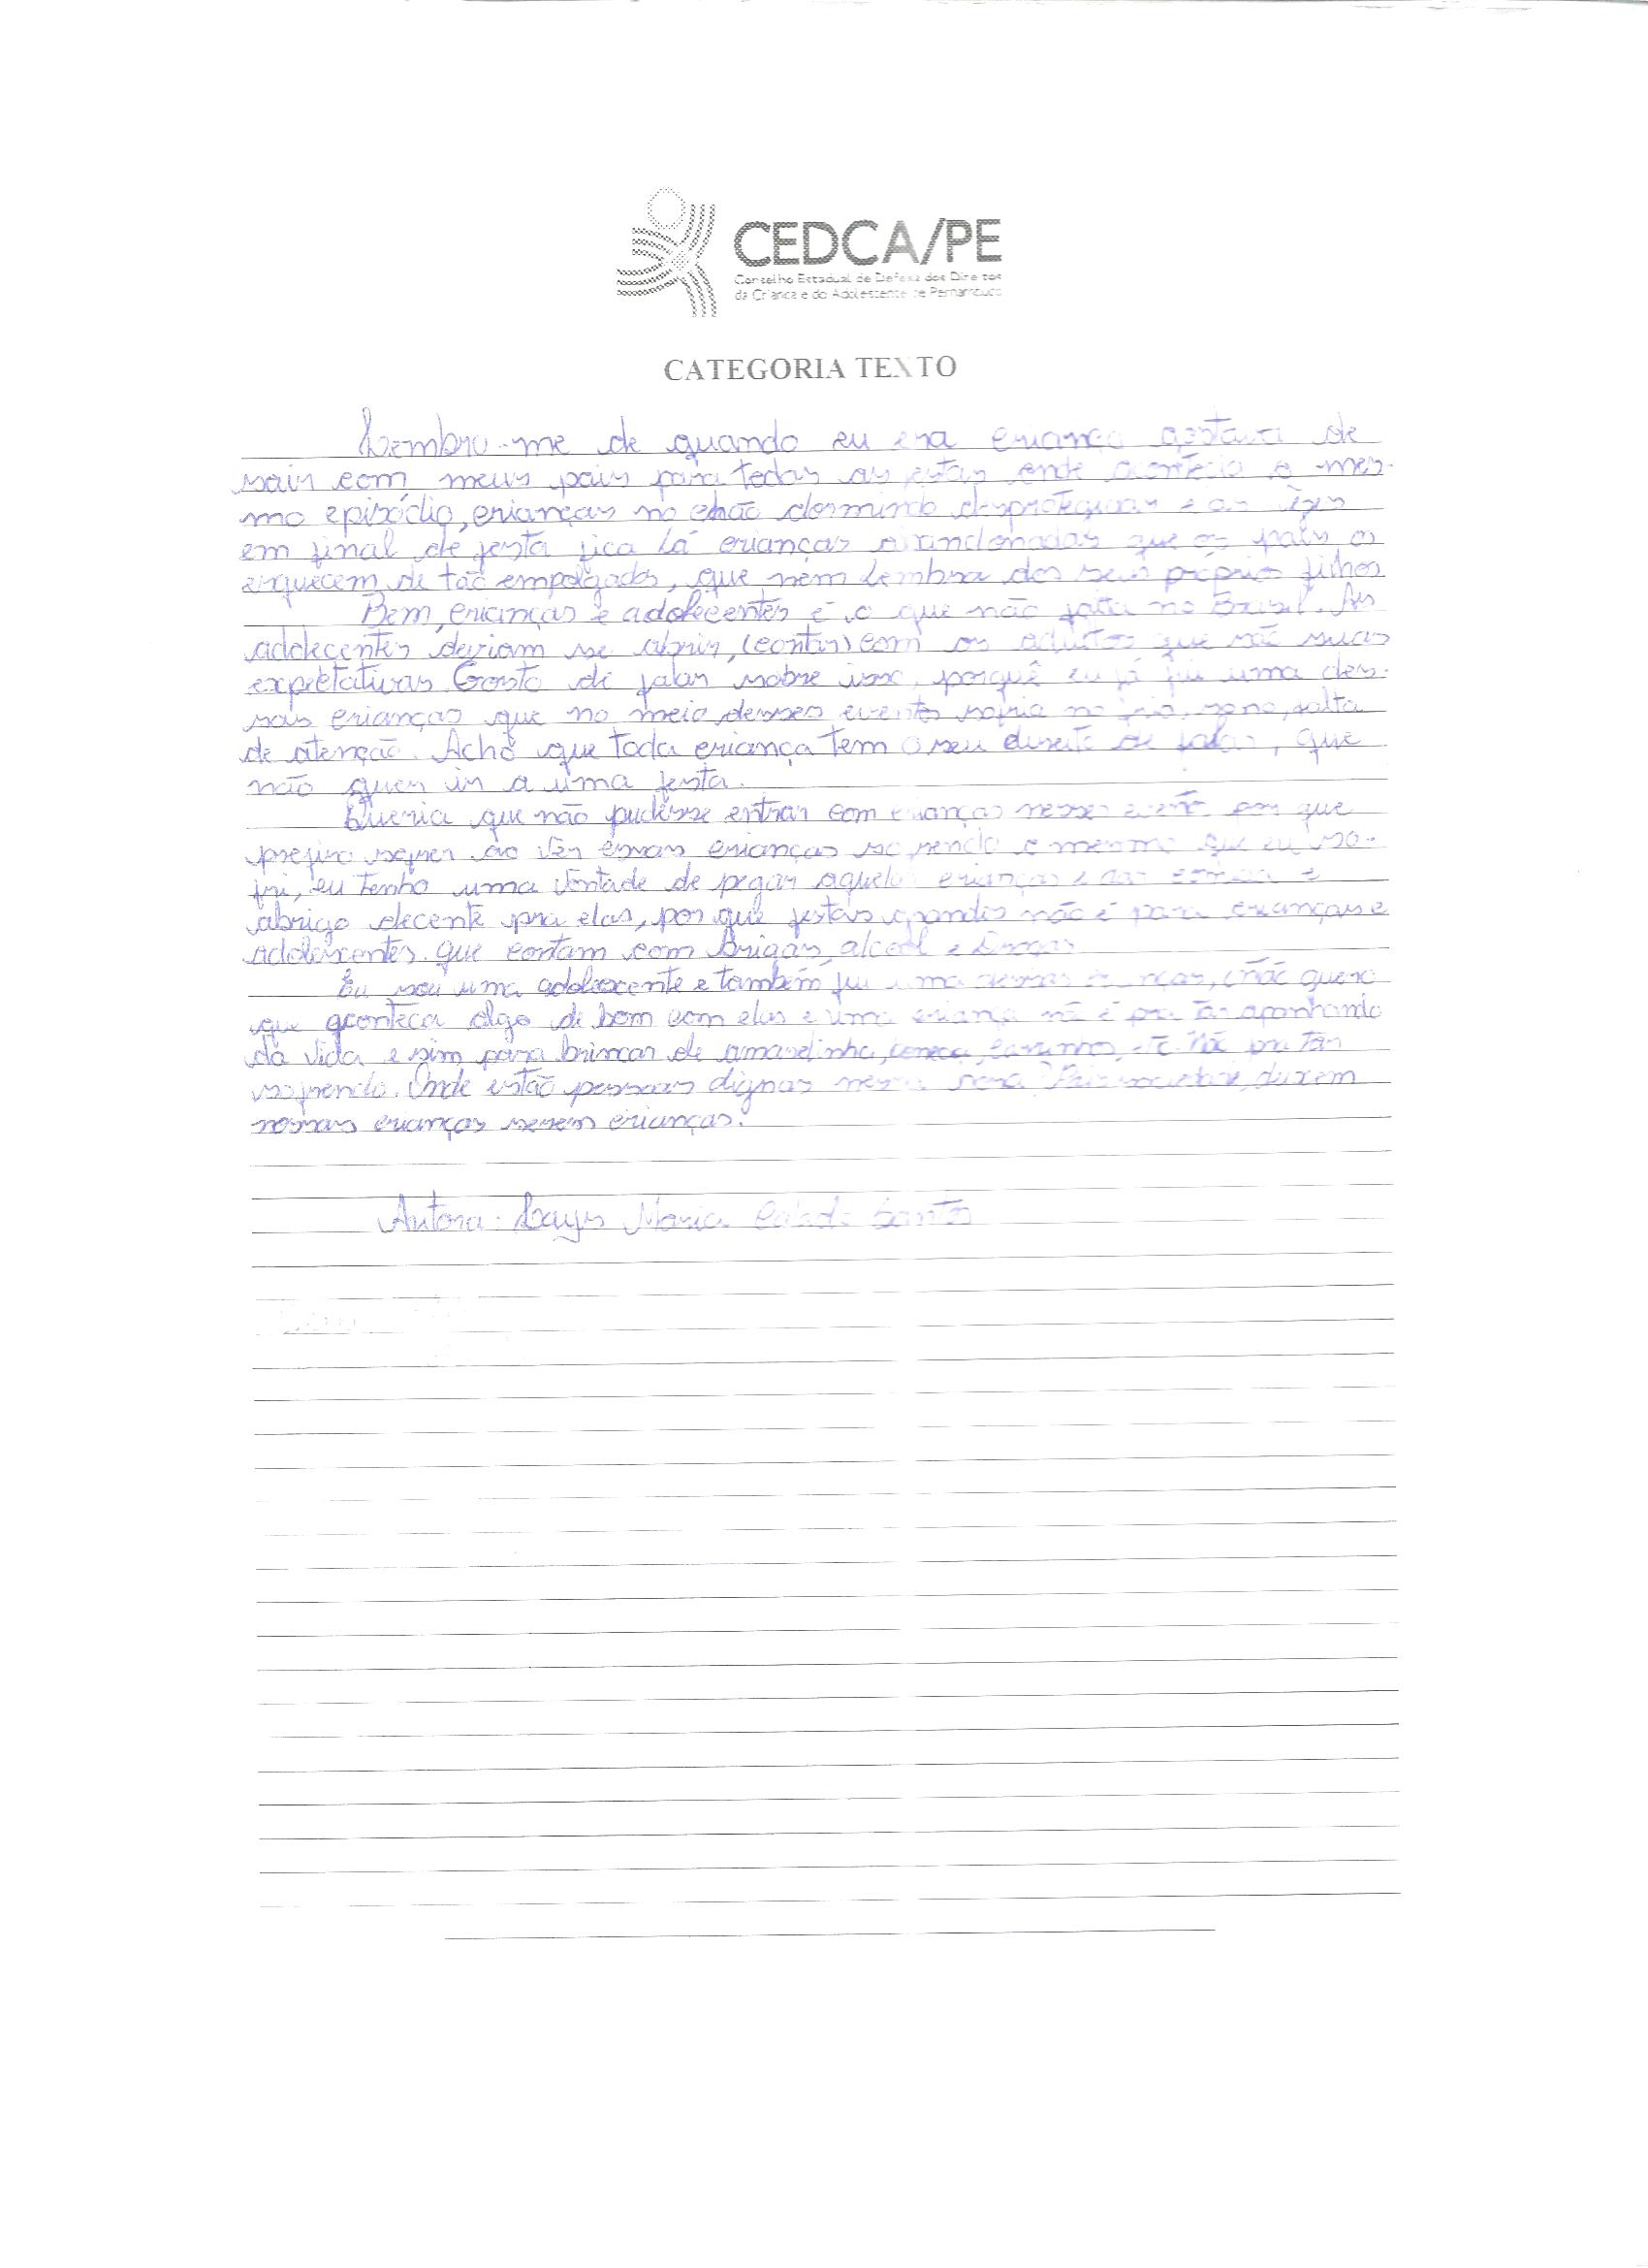 CEDCA/PE
Conselho Estadual de Defesa dos Direitos
da Criança e do Adolescente de Pernambuco
CATEGORIA TEXTO
Lembro-me de quando eu era criança gostava de
sair com meus pais para todas as festas onde acontecia o mes-
mo episódio, crianças no chão dormindo desprotegidas e as vezes
em final de festa fica lá crianças abandonadas que os pais os
esquecem de tão empolgados, que nem lembra dos seus próprios filhos
Bem, crianças e adolecentes é o que não falta no Brasil. As
adolecentes deviam se abrir, (contar) com os adultos que são suas
expectativas. Gosto de falar sobre isso, porquê eu já fui uma des-
sas crianças que no meio desses eventos sofria no frio, sono, falta
de atenção. Acho que toda criança tem o seu direito de falar, que
não quer ir a uma festa.
Queria que não pudesse entrar com crianças nesses evento por que
prefiro ao ver essas crianças sofrendo o mesmo que eu so-
fri, eu tenho uma vontade de pegar aquelas crianças e dar e
abrigo decente pra elas, por que festas grandes não é para crianças e
adolescentes. que contam com brigas, alcool e Drogas
Eu sou uma adolescente e também fui uma dessas crianças, (não quero
que aconteca algo de bom com elas e uma criança não é pra tar apanhando
da vida e sim para brincar de amarelinha, boneca, carrinho, etc. Não pra tar
sofrendo. Onde estão pessoas dignas nessa hora? sociedade, duxem
nossas crianças serem crianças.
Autora: Lays Maria Santos